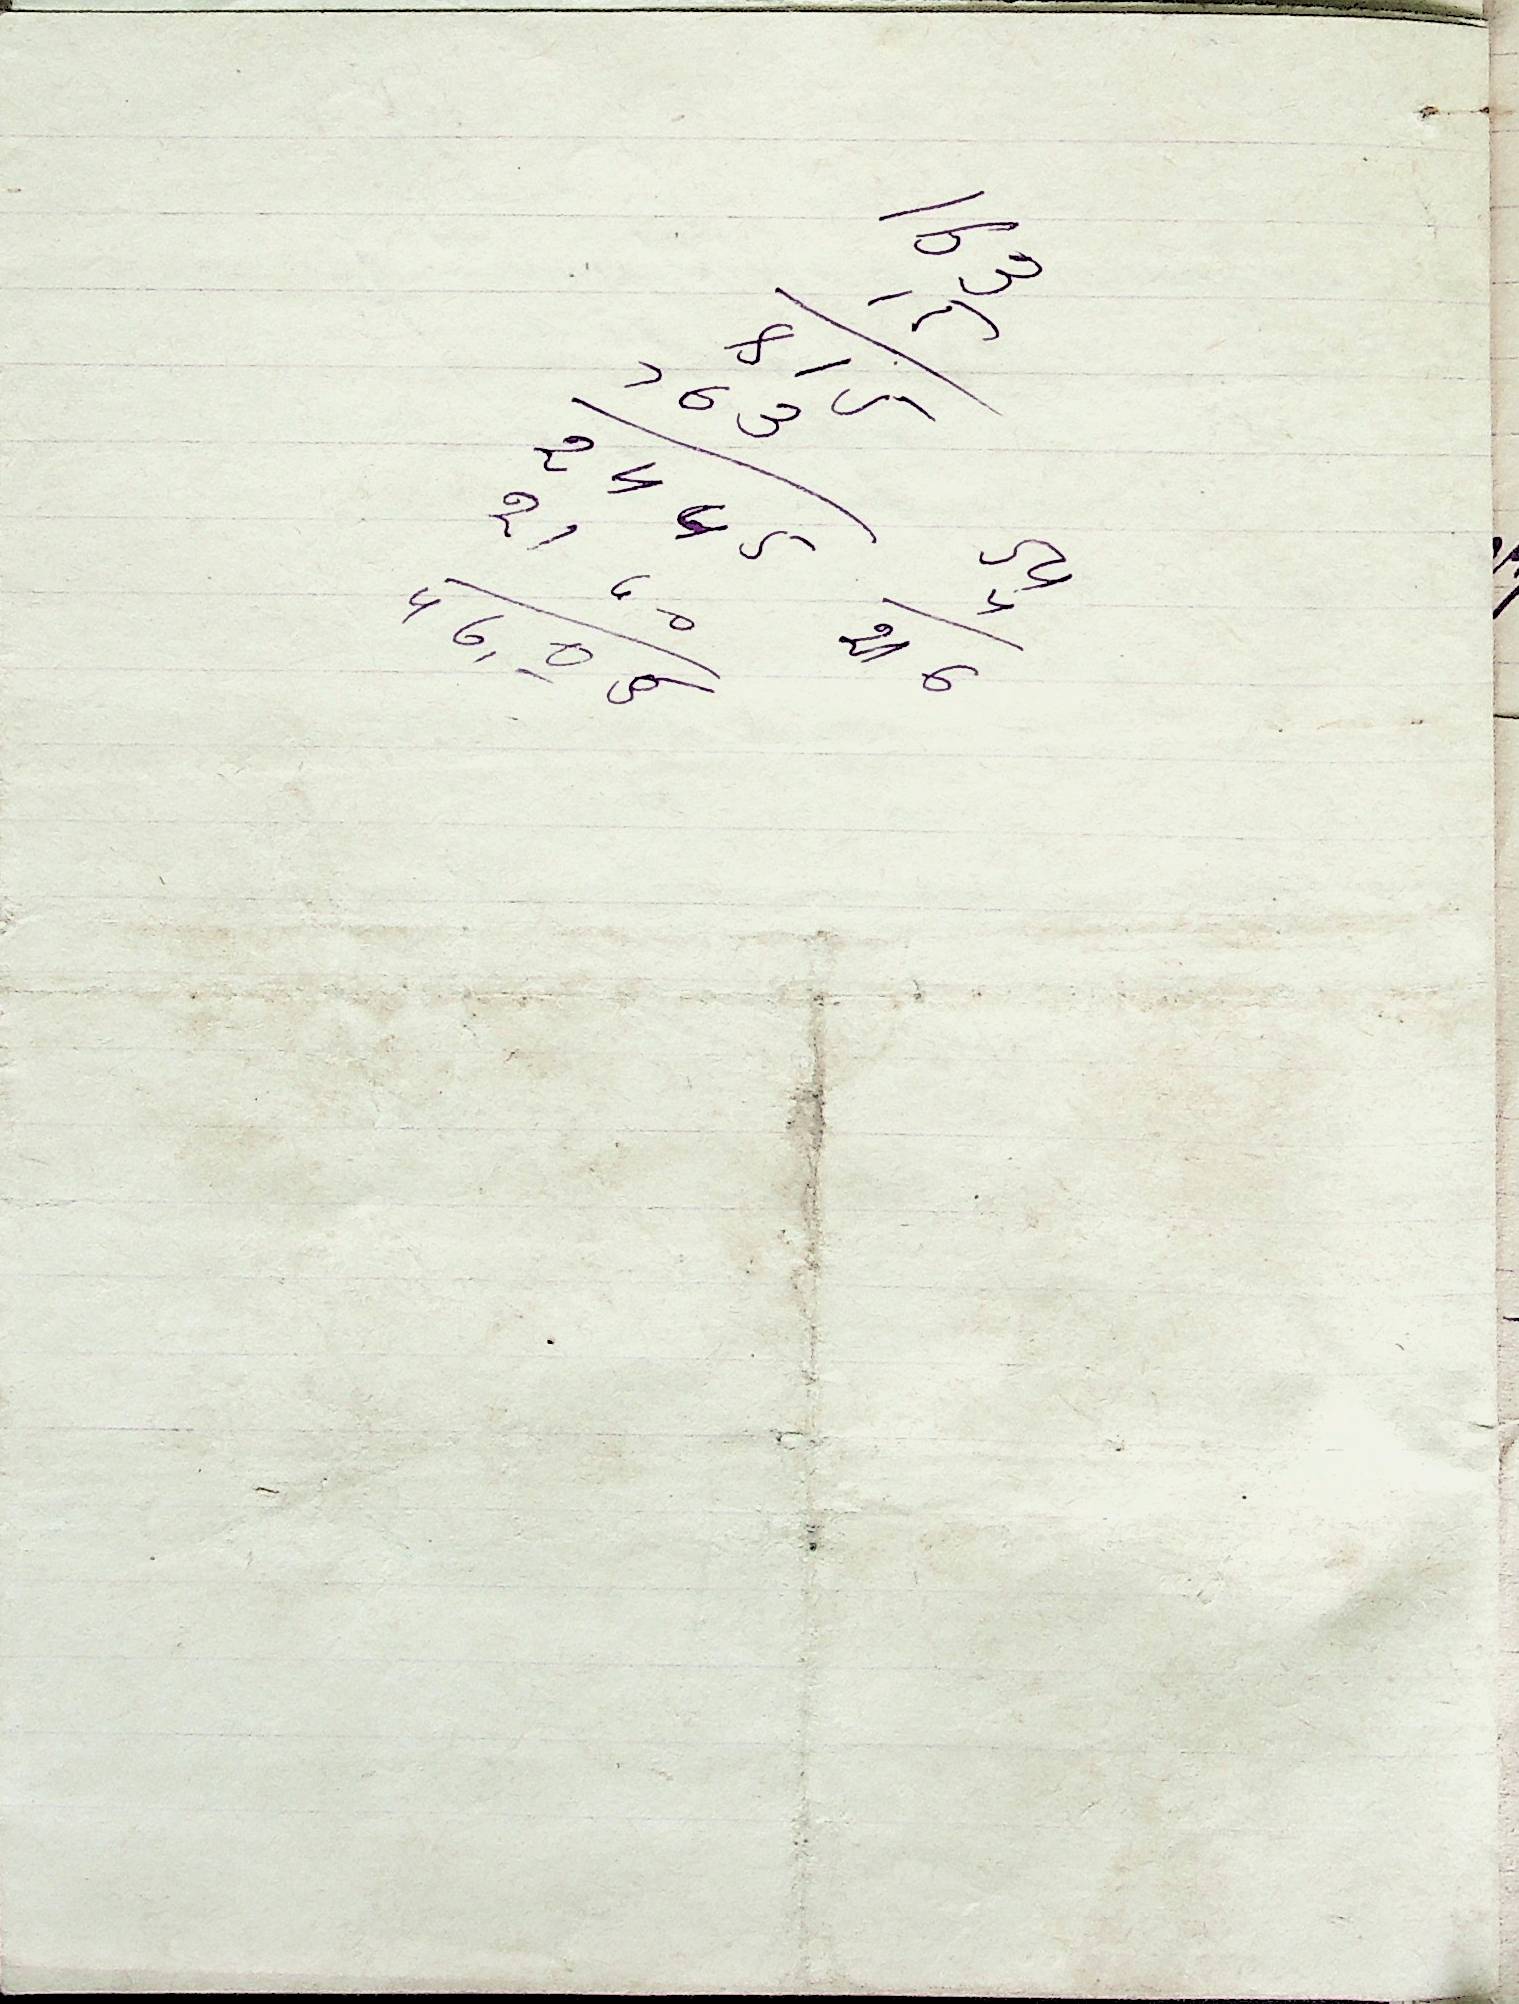 163
15
815
163
2445
2160
4605
54
4
216